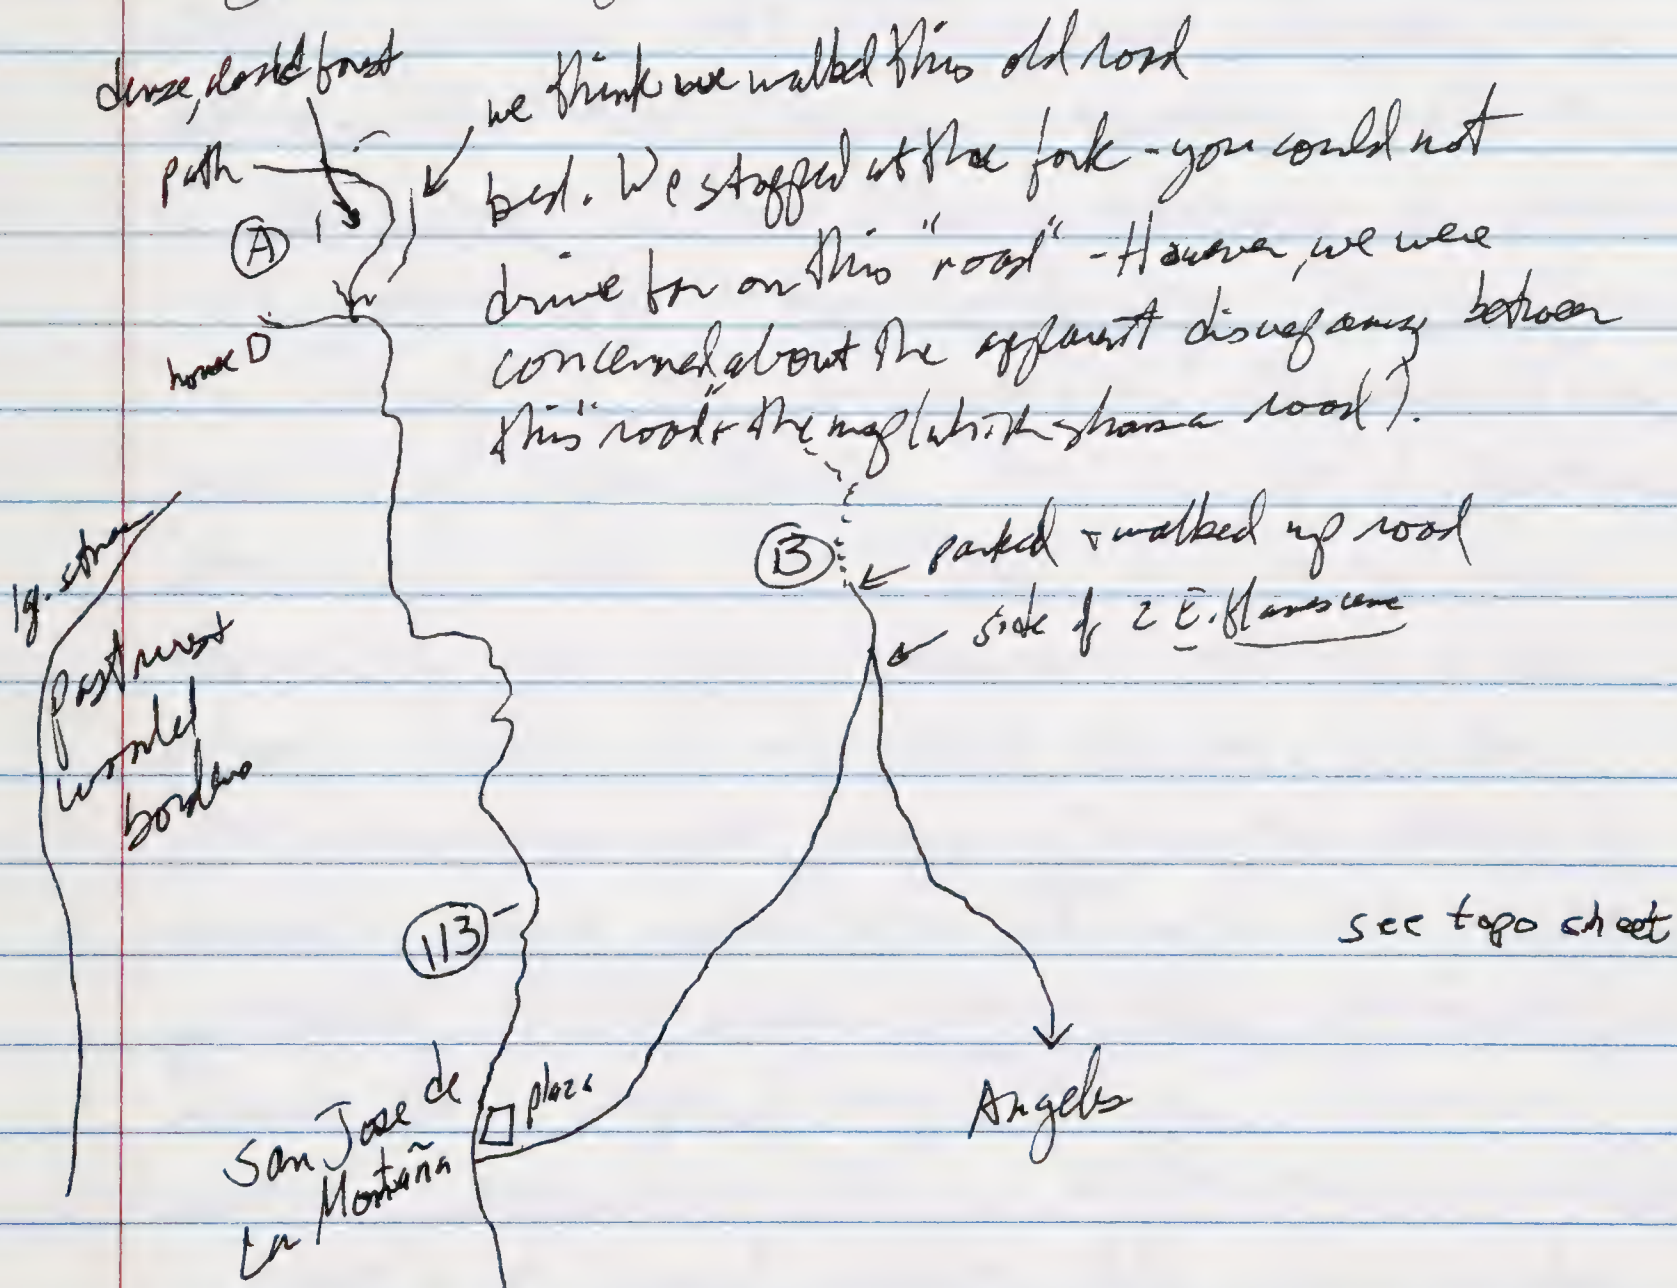 dense, cloud forest
path
A
house
we think we walked this old road
bed. We stopped at the fork - you could not
drive far on this "road" - However, we were
concerned about the apparent discrepancy between
this "road" & the map (which shows a road).
B
parked & walked up road
side of 2 E. flavescens
lg. stream
past
wooded
borders
113
see topo sheet
plaza
San Jose de
La Montaña
Angeles